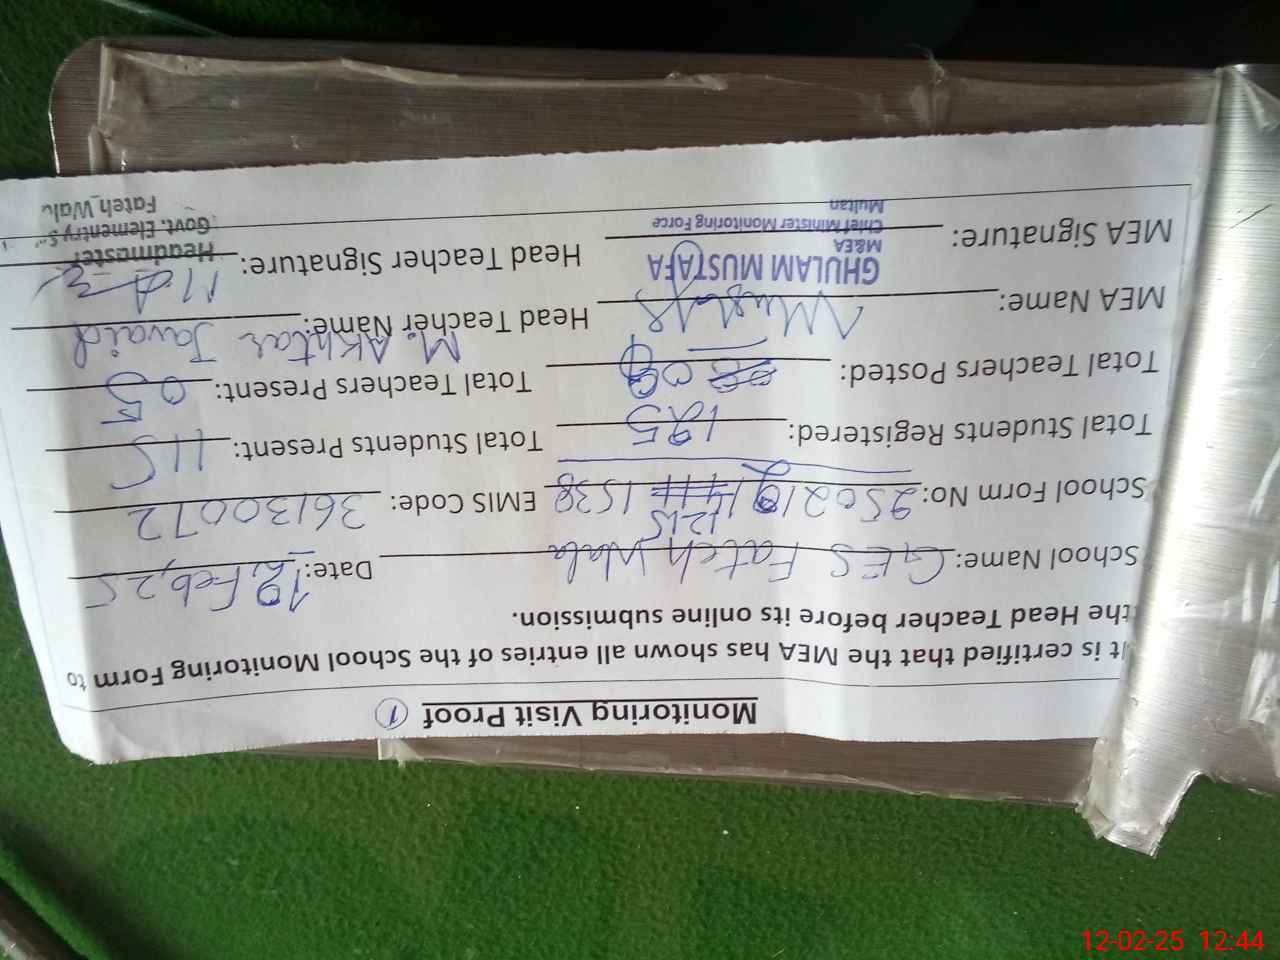 Monitoring Visit Proof 1
It is certified that the MEA has shown all entries of the School Monitoring Form to
the Head Teacher before its online submission.
School Name: GES Fateh Wala Date: 12 Feb, 25
School Form No: EMIS Code: 36130072
Total Students Registered: 125 Total Students Present: 115
Total Teachers Posted: Total Teachers Present: 05
MEA Name: Head Teacher Name: M. Akhtar Javaid
GHULAM MUSTAFA
M&EA
Chief Minister Monitoring Force
Multan
MEA Signature: Head Teacher Signature:
Headmaster
Govt. Elementry
Fateh Wala
12-02-25 12:44